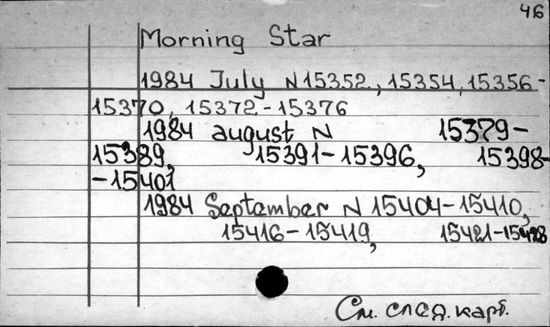 46
Morning Star
1984 July N 15352, 15354, 15356-
15370, 15372-15376
1984 august N 15379-
15389, 15391-15396, 15398-
-15401
1984 September N 15404-15410,
15416-15419, 15421-15428
См. след. карт.